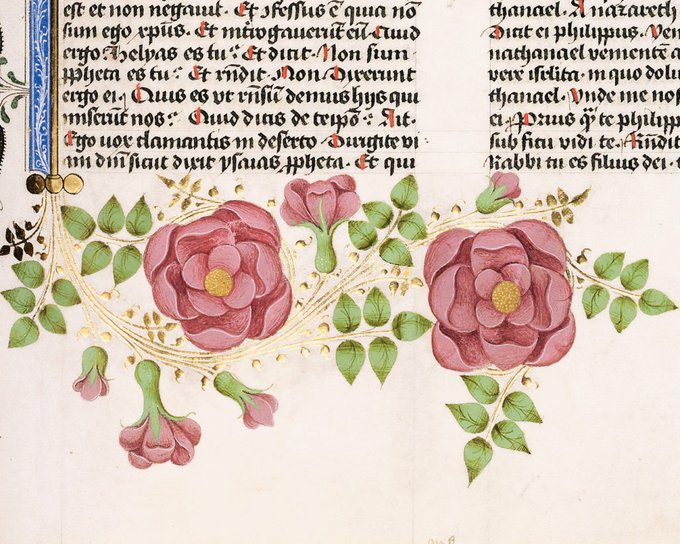 est et non negauit. Et ꝯfessus ē quia nō
sum ego xpūs. Et introgauerūt eū Quid
ergo Helyas es tu? Et dicit. Non sum
ꝓpheta es tu? Et rn̄dit. Non. Dixerunt
ergo ei. Quis es vt rn̄sū demus hijs qui
miserūt nos? Quid dicis de teip̄o? Ait.
Ego uox clamantis in deserto Dirigite vi
am dn̄i sicut dixit ysaias ꝓpheta. Et qui
thanael. A nazareth
Dicit ei philippus. Ven
nathanael venientē a
vere isr̄lita. in quo dolu
thanael. Vnde me nos
ei. Prius q̄ te philipp
sub ficu vidi te. Rn̄dit
Rabbi tu es filius dei. t